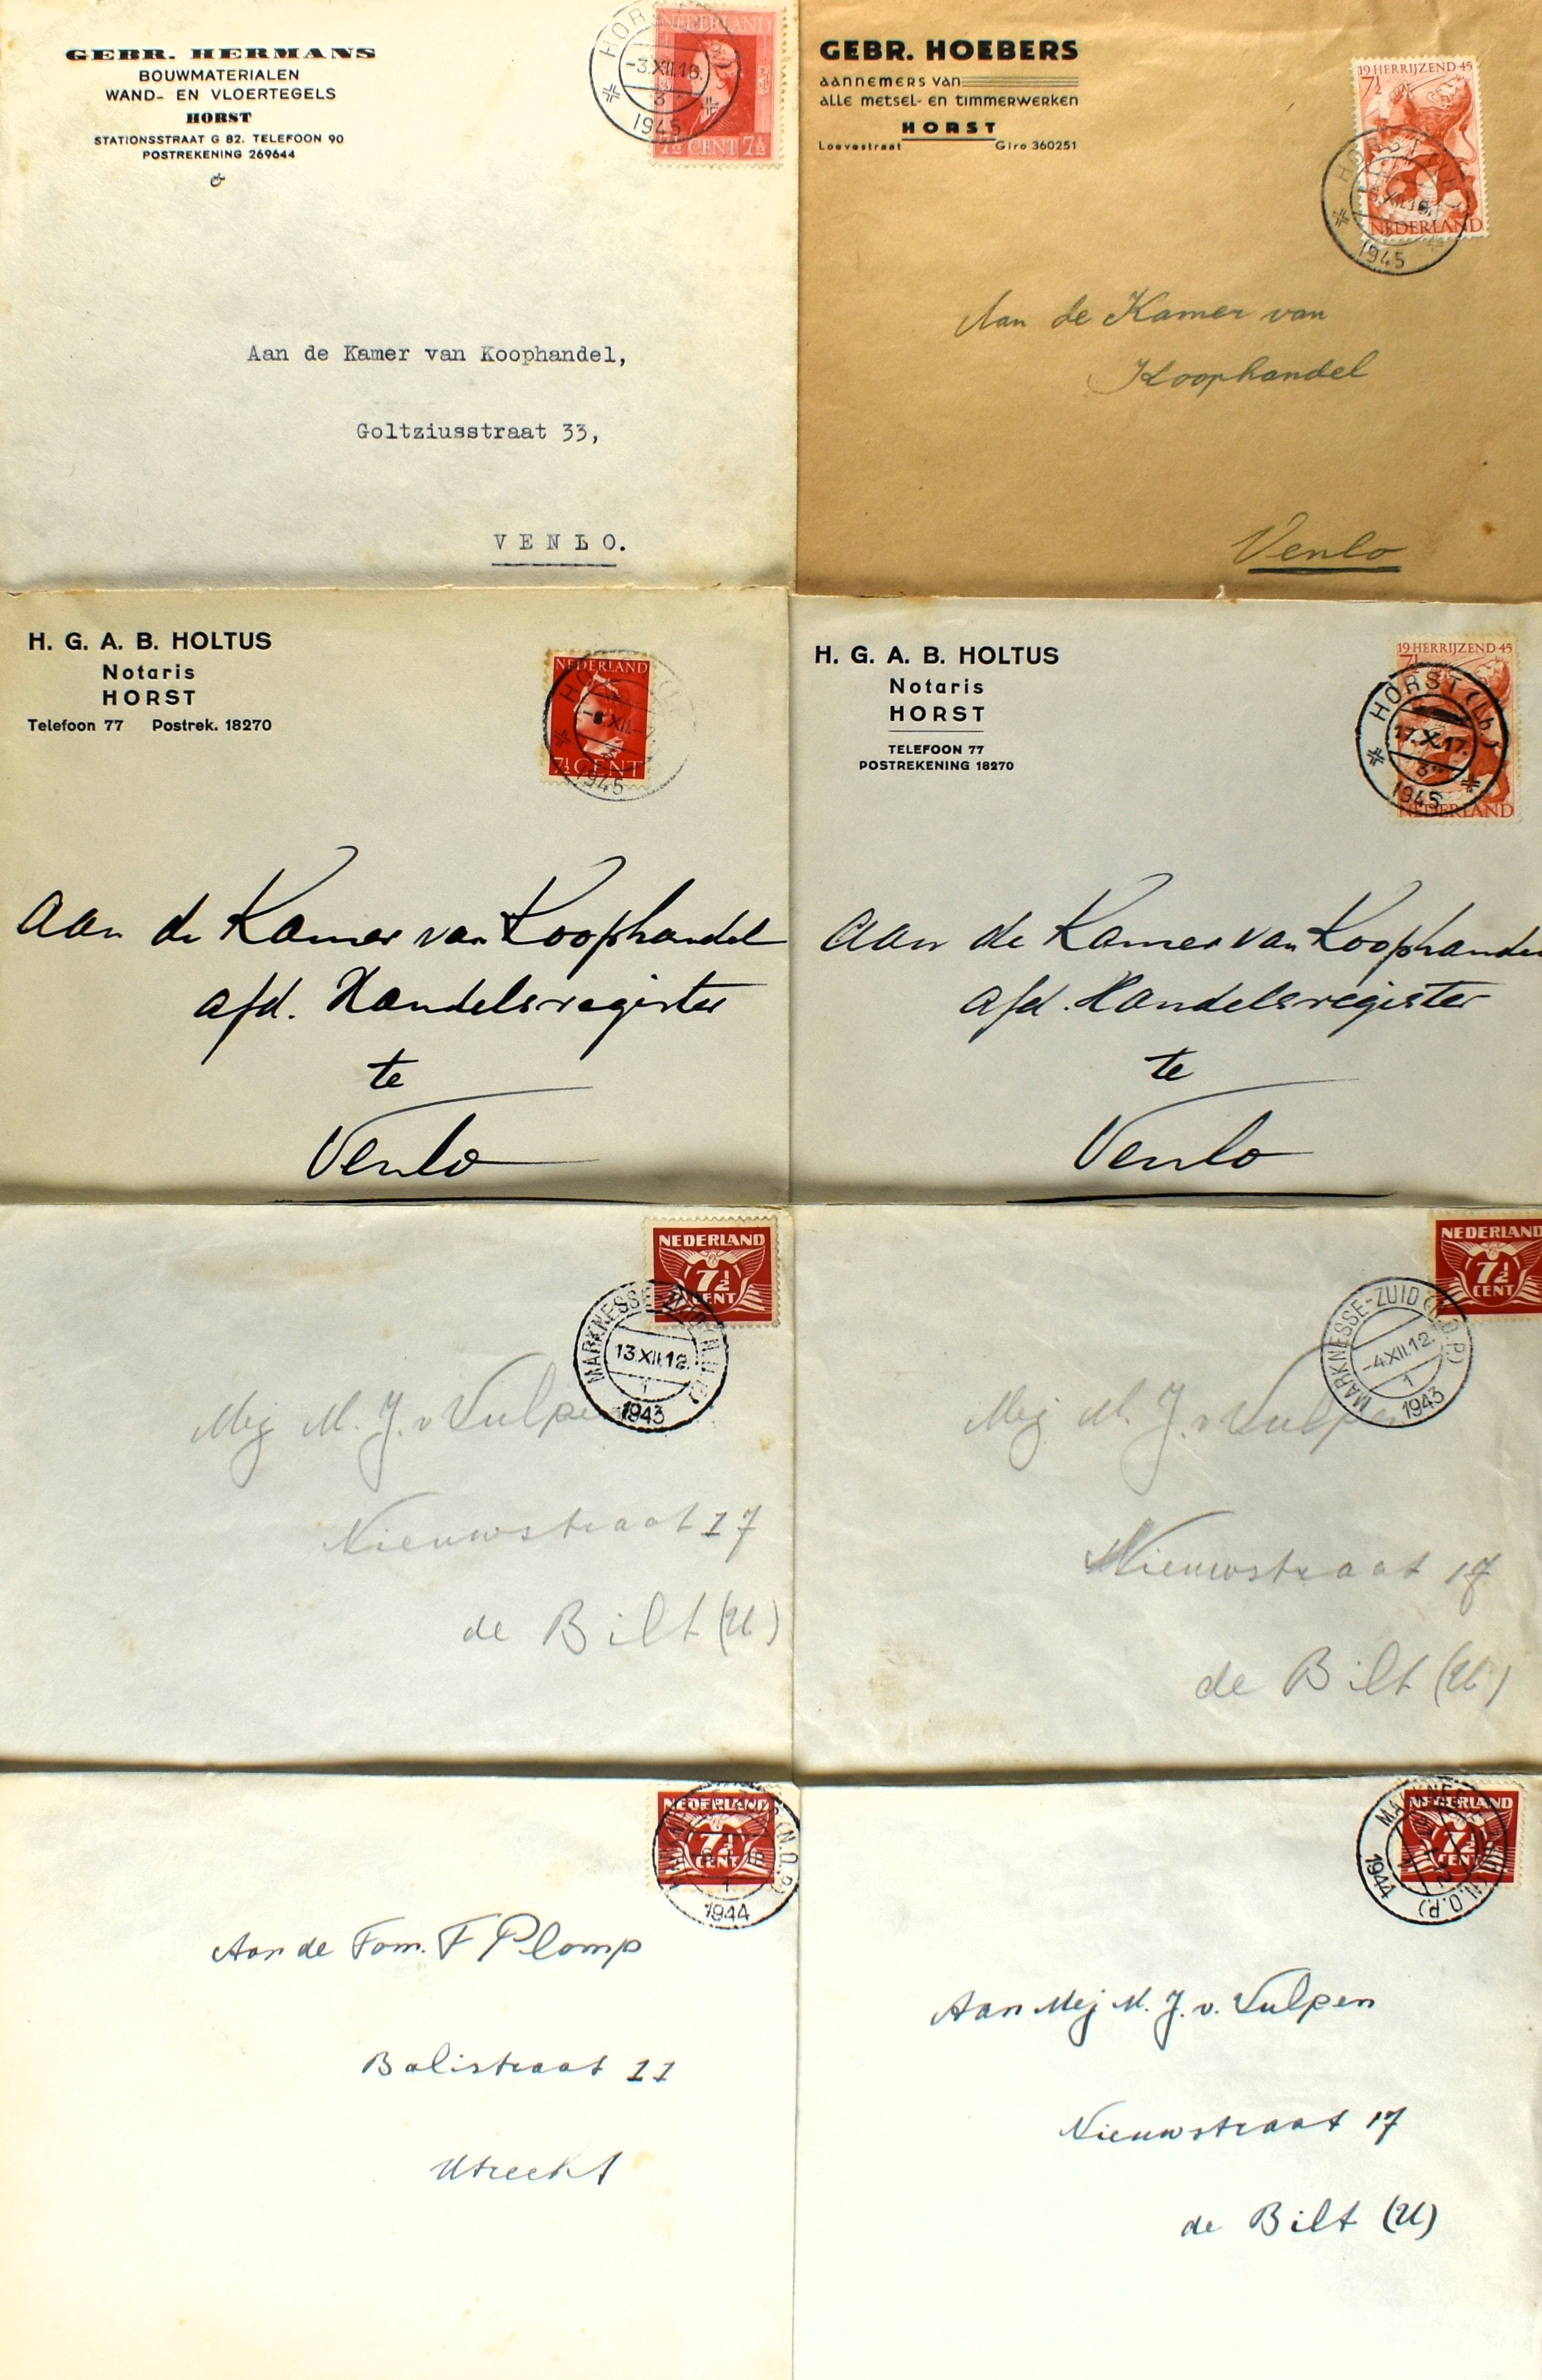 GEBR. HERMANS
BOUWMATERIALEN
WAND- EN VLOERTEGELS
HORST
STATIONSSTRAAT G 82. TELEFOON 90
POSTREKENING 269644
NEDERLAND
7½ CENT 7½
HORST
-3.XII.18.
3
1945
Aan de Kamer van Koophandel,
Goltziusstraat 33,
VENLO.
GEBR. HOEBERS
AANNEMERS VAN
ALLE METSEL- EN TIMMERWERKEN
HORST
Loevestraat Giro 360251
19 HERRIJZEND 45
7½
NEDERLAND
HORST
1945
Aan de Kamer van
Koophandel
Venlo
H. G. A. B. HOLTUS
Notaris
HORST
Telefoon 77 Postrek. 18270
NEDERLAND
7½ CENT
1945
Aan de Kamer van Koophandel
afd. Handelsregister
te
Venlo
H. G. A. B. HOLTUS
Notaris
HORST
TELEFOON 77
POSTREKENING 18270
19 HERRIJZEND 45
7½
NEDERLAND
HORST (Lb)
17.X.17.
3
1945
Aan de Kamer van Koophandel
afd. Handelsregister
te
Venlo
NEDERLAND
7½
CENT
MARKNESSE-ZUID (N.O.P.)
13.XII.12.
1
1943
Mej M. J. v Vulpen
Nieuwstraat 17
de Bilt (U)
NEDERLAND
7½
CENT
MARKNESSE-ZUID (N.O.P.)
-4.XII.12.
1
1943
Mej M. J. v Vulpen
Nieuwstraat 17
de Bilt (U)
NEDERLAND
7½
CENT
(N.O.P.)
1
1944
Aan de Fam. F Plomp
Balistraat 11
Utrecht
NEDERLAND
7½
CENT
(N.O.P.)
1944
Aan Mej M. J. v. Vulpen
Nieuwstraat 17
de Bilt (U)